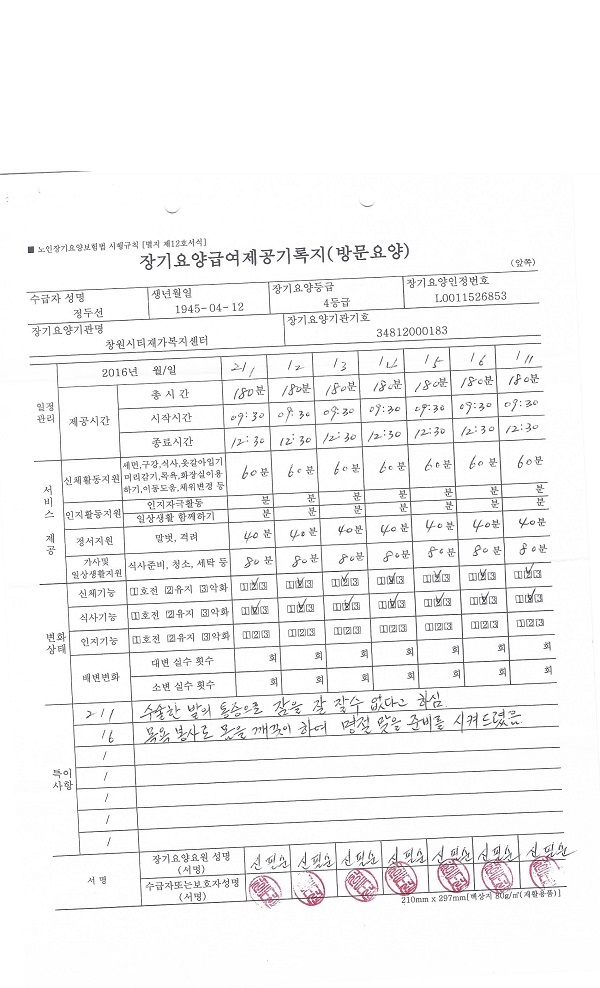 ■ 노인장기요양보험법 시행규칙 [별지 제12호서식]
장기요양급여제공기록지(방문요양)
(앞쪽)
수급자 성명 생년월일 장기요양등급 장기요양인정번호
정두선 1945-04-12 4등급 L0011526853
장기요양기관명 장기요양기관기호
창원시티재가복지센터 34812000183
일정관리 2016년 월/일 2/1 /2 /3 /4 /5 /6 /11
제공시간 총 시간 180분 180분 180분 180분 180분 180분 180분
시작시간 09:30 09:30 09:30 09:30 09:30 09:30 09:30
종료시간 12:30 12:30 12:30 12:30 12:30 12:30 12:30
서비스 제공
신체활동지원 세면,구강,식사,옷갈아입기 머리감기,목욕,화장실이용 하기,이동도움,체위변경 등 60분 60분 60분 60분 60분 60분 60분
인지활동지원 인지자극활동 분 분 분 분 분 분 분
일상생활 함께하기 분 분 분 분 분 분 분
정서지원 말벗, 격려 40분 40분 40분 40분 40분 40분 40분
가사및 일상생활지원 식사준비, 청소, 세탁 등 80분 80분 80분 80분 80분 80분 80분
변화상태
신체기능 1호전 2유지 3악화 123 123 123 123 123 123 123
식사기능 1호전 2유지 3악화 123 123 123 123 123 123 123
인지기능 1호전 2유지 3악화 123 123 123 123 123 123 123
배변변화 대변 실수 횟수 회 회 회 회 회 회 회
소변 실수 횟수 회 회 회 회 회 회 회
특이사항
2/1 수술한 발의 통증으로 잠을 잘 잘수 없다고 하심.
/6 목욕 봉사로 몸을 깨끗이 하여 명절 맞을 준비를 시켜드렸음.
/
/
/
/
서 명
장기요양요원 성명 (서명) 신필순 신필순 신필순 신필순 신필순 신필순 신필순
수급자또는보호자성명 (서명)
210mm x 297mm[백상지 80g/㎡(재활용품)]